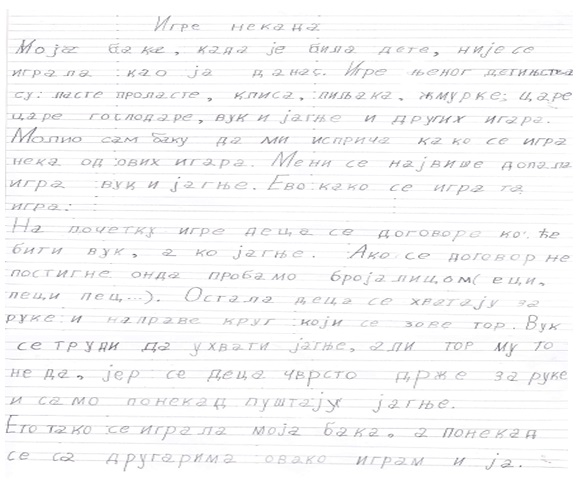 Игре некада
Моја бака, када је била дете, није се
играла као ја данас. Игре њеног детињства
су: ласте проласте, клиса, пиљака, жмурке, царе
царе господаре, вук и јагње и других игара.
Молио сам баку да ми исприча како се игра
нека од ових игара. Мени се највише допала
игра вук и јагње. Ево како се игра та
игра:
На почетку игре деца се договоре ко ће
бити вук, а ко јагње. Ако се договор не
постигне онда пробамо бројалицом( еци,
пеци пец...). Остала деца се хватају за
руке и направе круг који се зове тор. Вук
се труди да ухвати јагње, али тор му то
не да, јер се деца чврсто држе за руке
и само понекад пуштају јагње.
Ето тако се играла моја бака, а понекад
се са другарима овако играм и ја.